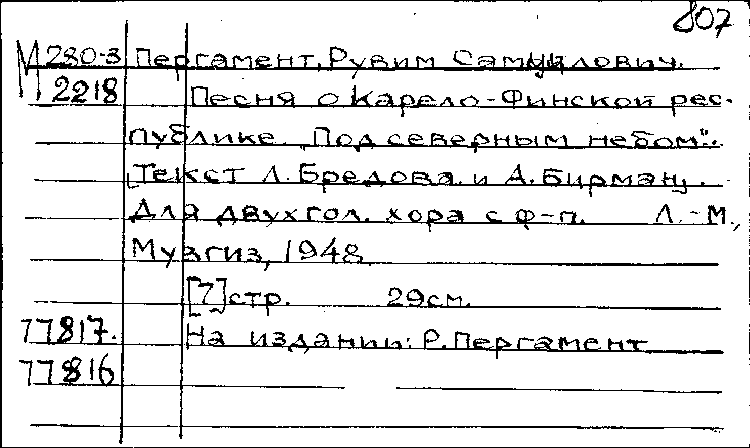 807
М 280-3 Пергамент, Рувим Самуилович.
2218 Песня о Карело-Финской рес-
публике „Под северным небом“.
[Текст Л. Бредова и А. Бирман].
Для двухгол. хора с ф-п. Л.-М.,
Музгиз, 1948
[7] стр. 29см.
77817. На издании: Р. Пергамент
77816